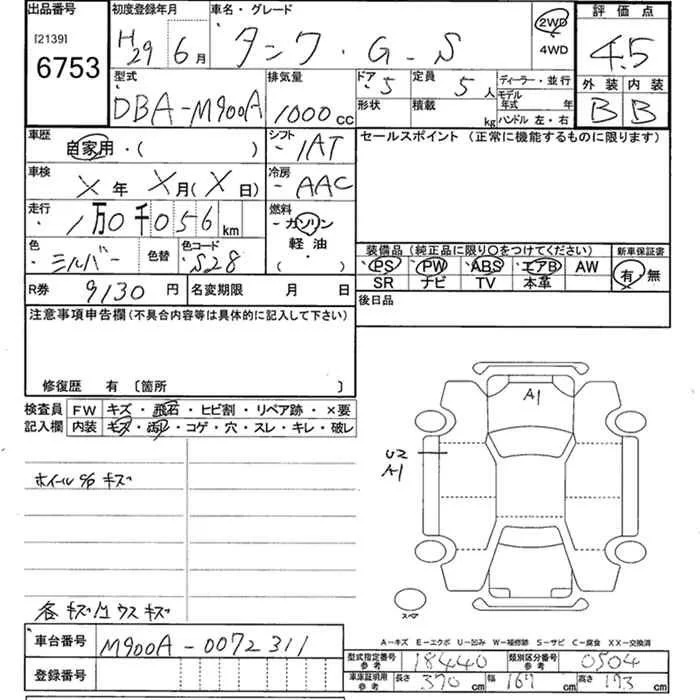 出品番号 初度登録年月 車名・グレード 2WD 4WD 評価点
[2139]
6753
H29 6月 タンク・G・S 4.5
型式 排気量 ドア 5 定員 5人 ディーラー・並行 外装 内装
DBA-M900A 1000cc 形状 積載 kg モデル年式 年 B B
ハンドル 左・右
車歴 自家用・( ) シフト IAT セールスポイント (正常に機能するものに限ります)
車検 X年 X月(X日) 冷房 AAC
走行 1万0千056km 燃料 ガソリン 軽油 ( )
色 シルバー 色替 色コード S28
装備品(純正品に限り○をつけてください) 新車保証書
PS PW ABS エアB AW 有・無
SR ナビ TV 本革
R券 9130円 名変期限 月 日 後日品
注意事項申告欄(不具合内容等は具体的に記入して下さい)
修復歴 有 〔箇所 〕
検査員 FW キズ・飛石・ヒビ割・リペア跡・×要
記入欄 内装 キズ・汚レ・コゲ・穴・スレ・キレ・破レ
A1
U2
A1
ホイール% キズ
各キズ/1 ウスキズ
スペア
A-キズ E-エクボ U-凹み W-補修跡 S-サビ C-腐食 XX-交換済
車台番号 M900A-0072311
登録番号
型式指定番号 参考 18440 類別区分番号 参考 0504
車庫証明用 参考 長さ 370cm 幅 167cm 高さ 173cm